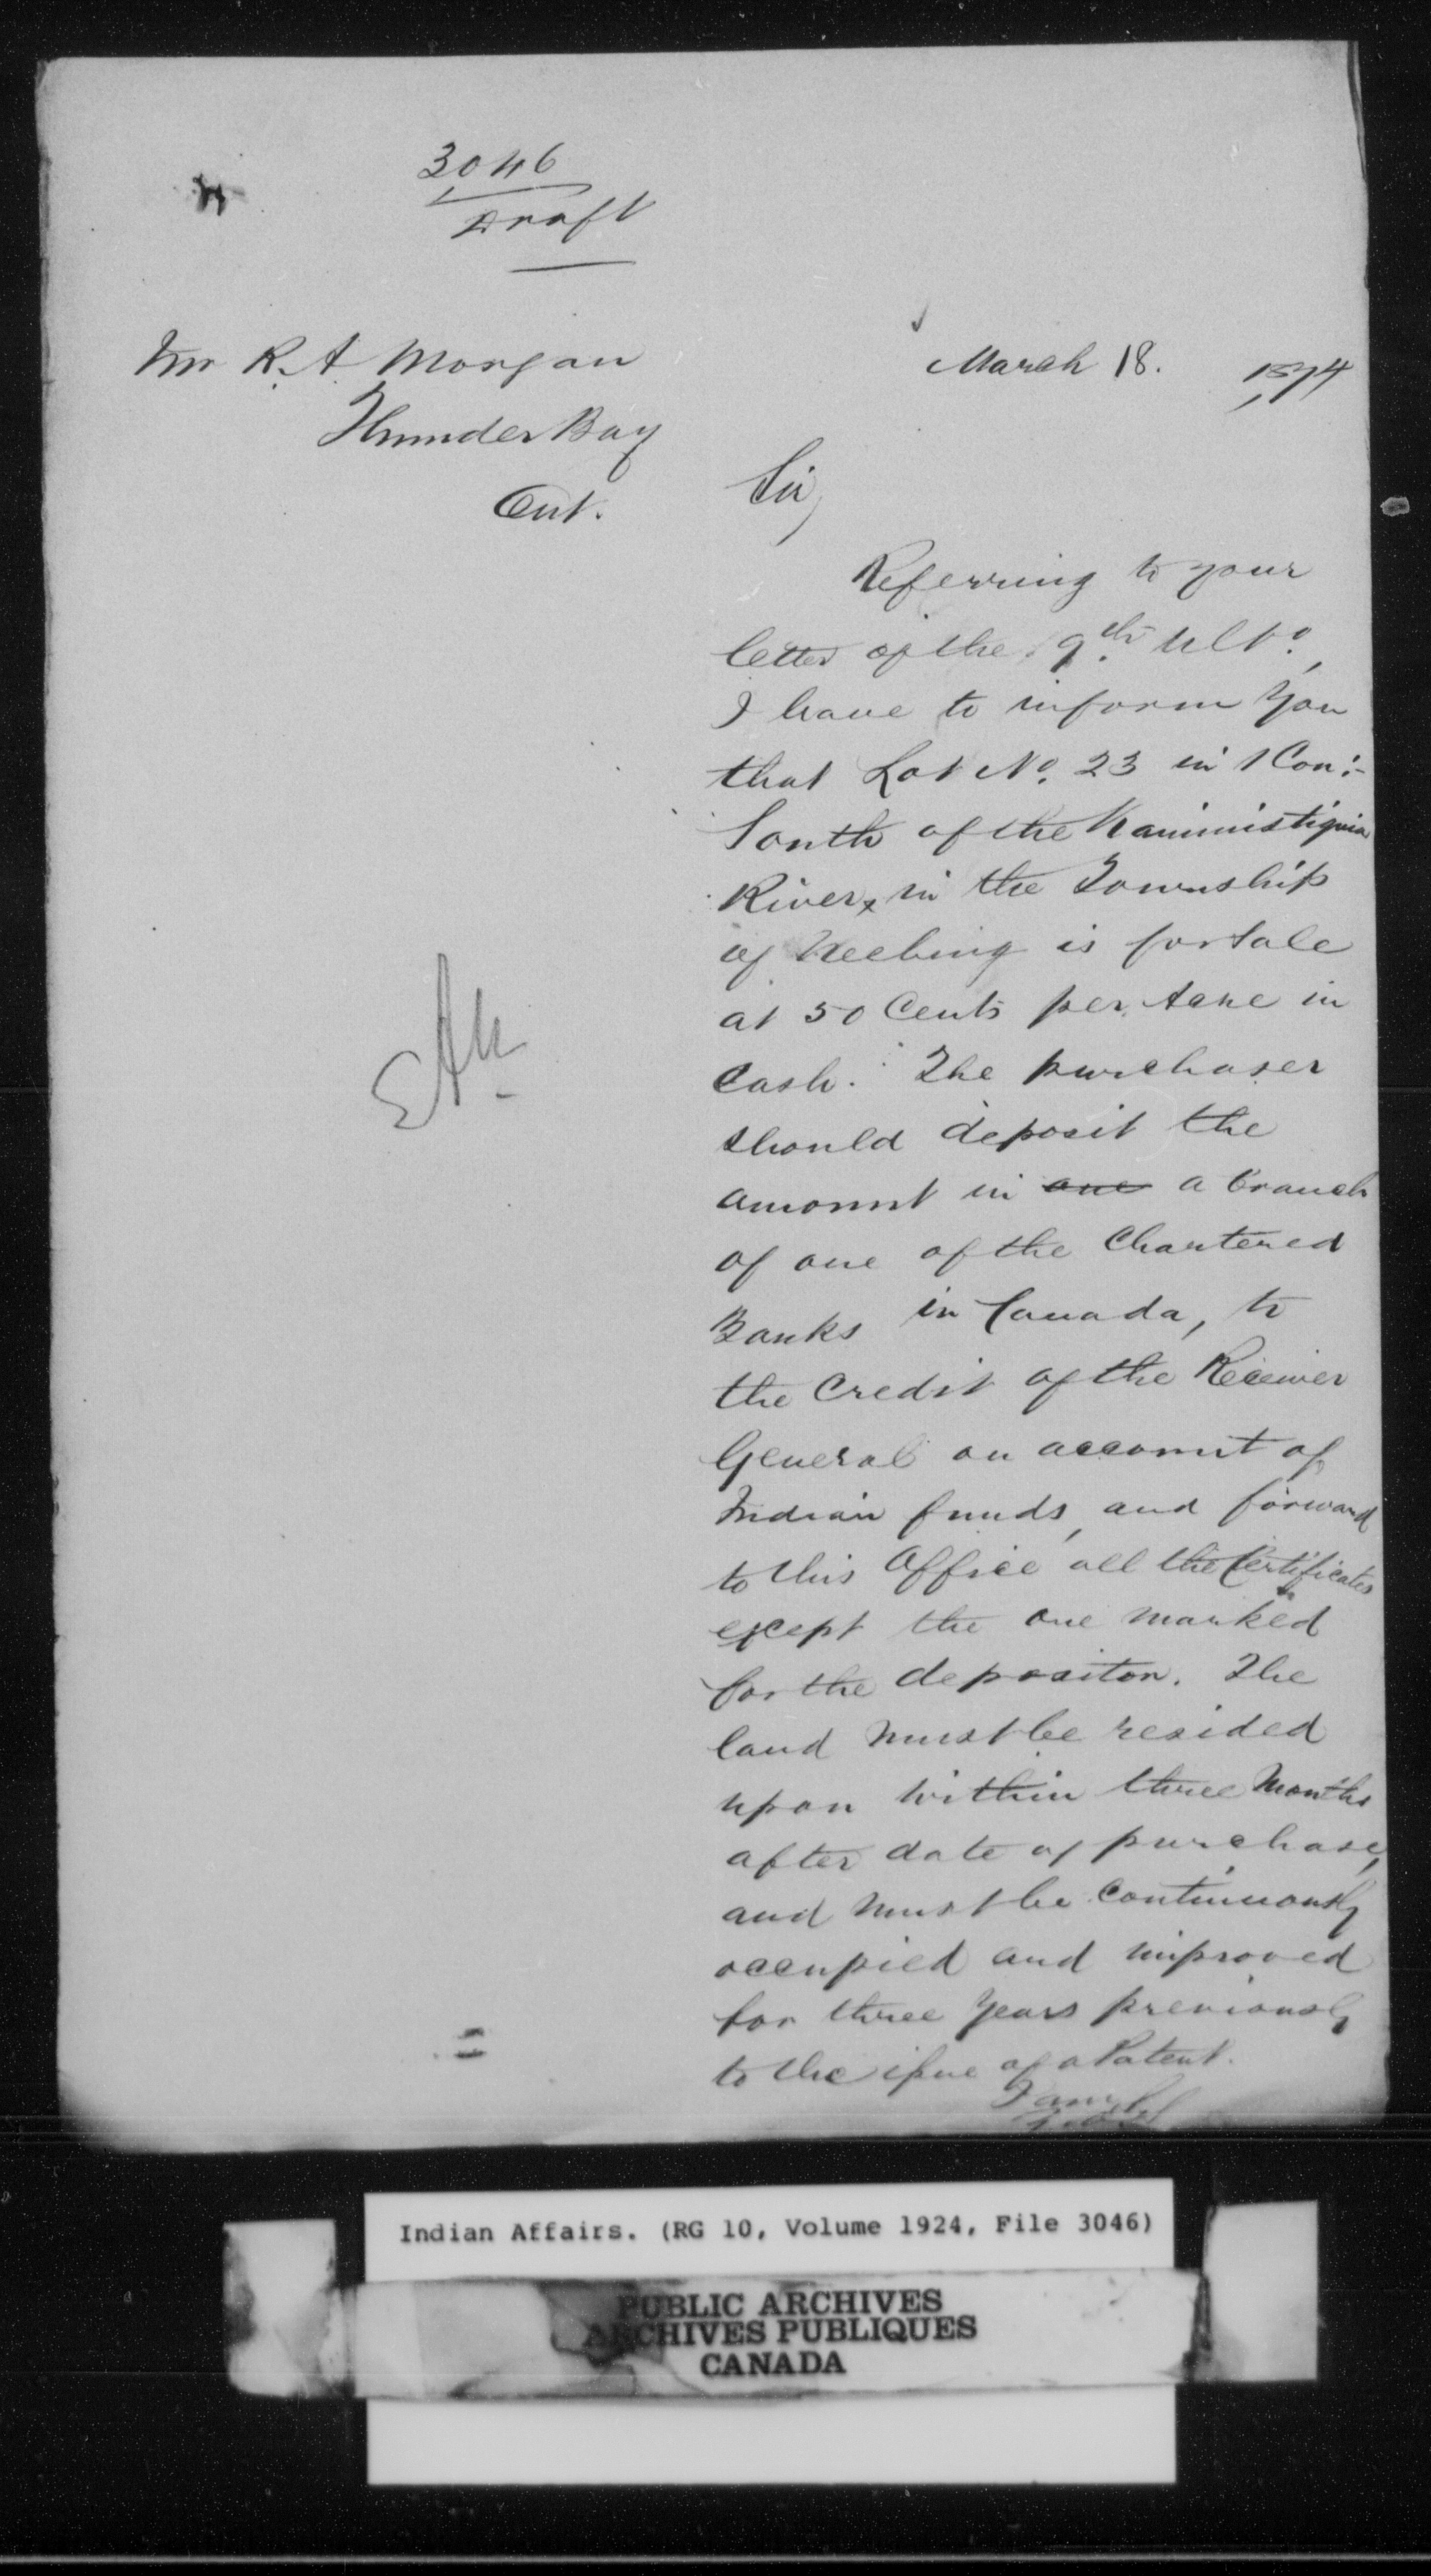 3046
Draft
Mr R. A Morgan
Thunder Bay
Ont.
March 18. 1874
Sir,
Referring to your
letter of the 9th. Ulto.,
I have to inform you
that Lot No. 23 in 1 Con:-
South of the Kaministiquia
River, in the Township
of Neebing is for Sale
at 50 Cents per Acre in
Cash. The purchaser
should deposit the
amount in one a branch
of one of the Chartered
Banks in Canada, to
the Credit of the Receiver
General on account of
Indian funds, and forward
to this Office all the Certificates
except the one marked
for the depositor. The
land must be resided
upon within three Months
after date of purchase,
and must be Continuously
occupied and improved
for three Years previously
to the issue of a Patent.
Indian Affairs. (RG 10, Volume 1924, File 3046)
PUBLIC ARCHIVES
ARCHIVES PUBLIQUES
CANADA